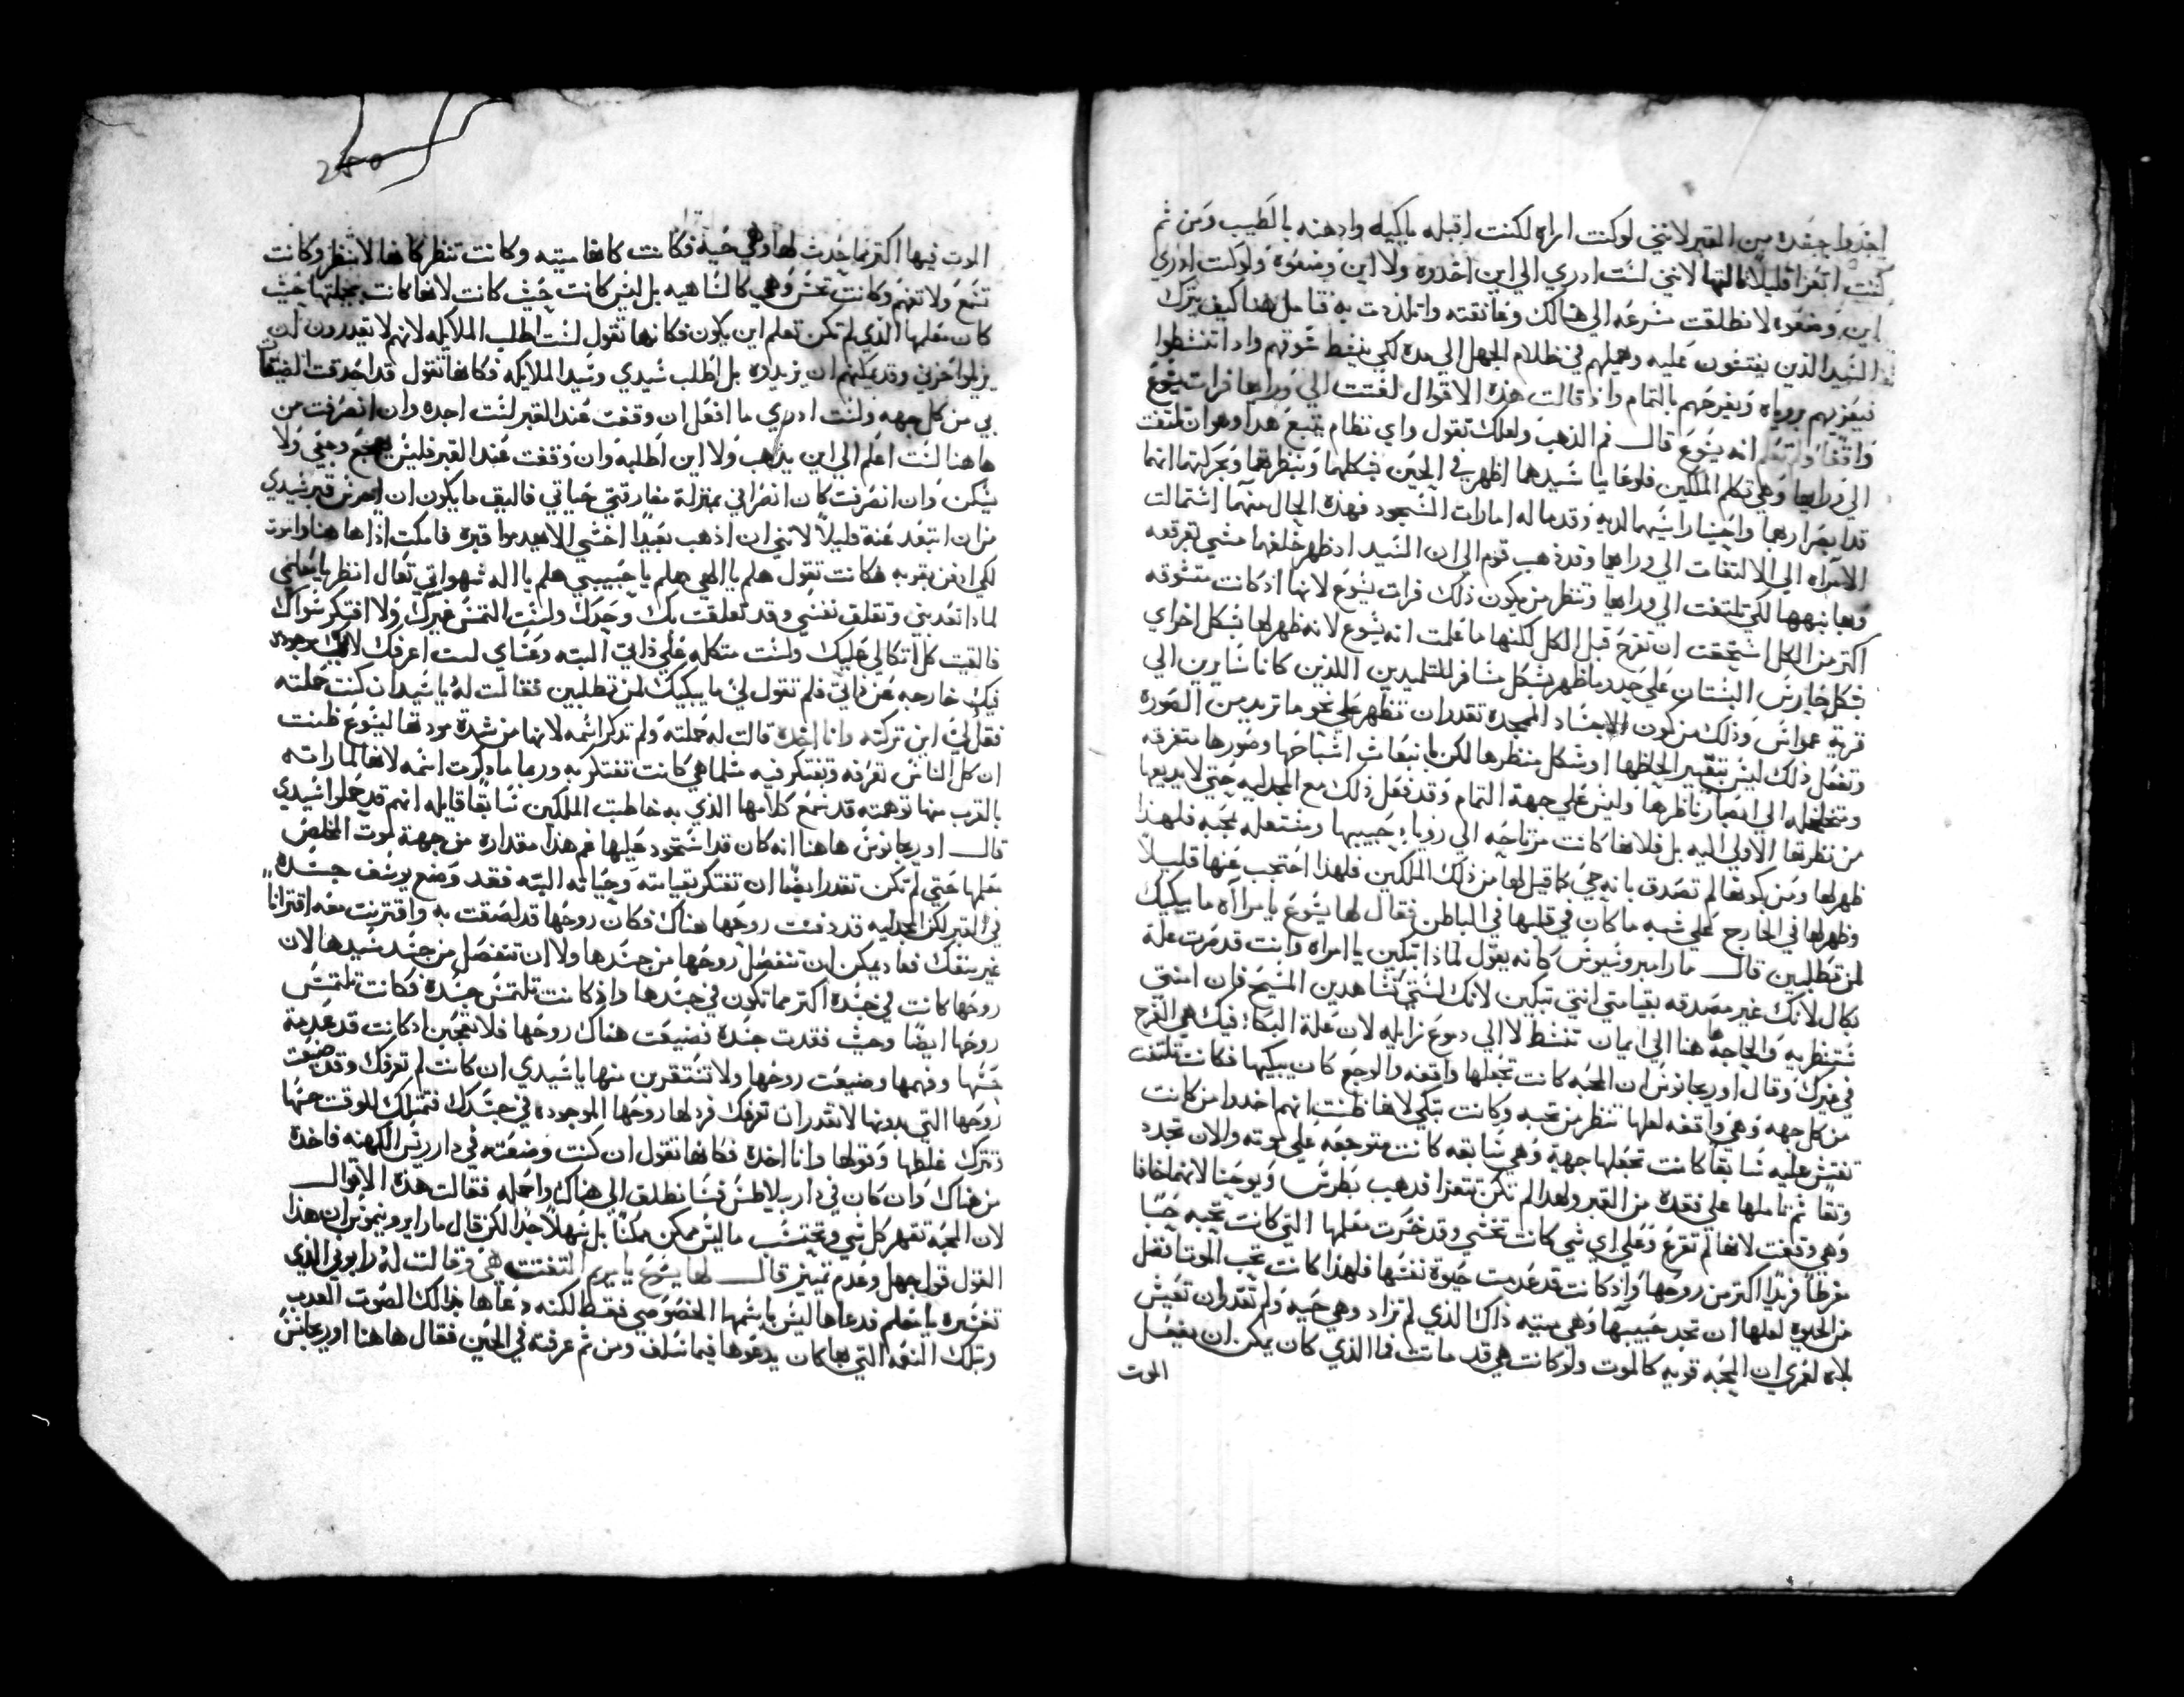 اخذوا جسده من القبر لانني لو كنت اراه لكنت اقبله بابكيله وادهنه بالطيب ومن ثم
كنت اتعزا قليلا قالتها لانني لست ادري الي اين اخذوه ولا اين وضعوه ولو كنت ادري
اين وضعوه لانطلقت مسرعه الي هنالك وعانقته واتلذذت به فتامل هنا كيف يترك
السيد الذين يفتشون عليه ويهملهم في ظلام الجهل الي مدة لكي ينشط شوقهم واذا تنشطوا
فيعزيهم بروياه ويفرحهم بالتمام واذ قالت هذه الاقوال لفتت الي ورايها فرات يسوع
واقفا ولم تعلم انه يسوع قال فم الذهب ولعلك تقول واي نظام يتبع هذا وهو ان تلتفت
الي ورايها وهي تكلم الملكين فلوعا بيا سيدهما اظهر في الحين بشكلهما وبنظرهما وبحركتهما انهما
قد ابصرا ربها واخيسارا نسيهما لديه وقدما له امارات السجود فهذه الحال منهما اشتمالت
الامراه الي الالتفات الي ورايها وقد ذهب قوم الي ان السيد اذ ظهر خلفها مشي بفرقعه
وبها نبهها لكي تلتفت الي ورايها وتنظر من يكون ذلك فرات يسوع لانها اذ كانت متشوقه
اكتر من الكل استحقت ان تفرح قبل الكل لكنها ما علمت انه يسوع لانه ظهر لها بشكل اخراي
بشكل حارس البستان علي حدو ما ظهر بشكل مسافر للتلميدين اللذين كانا سايرين الي
قرية عمواس وذلك من كون الاجساد الممجدة تقدر ان تظهر علي نحو ما تريد من الصوره
وتفعل ذلك ليس بتغيير لحاظها او شكل منظرها لكن بانبعاث اشباحها وصورها متفرقه
ومتخلخله الي ابصار ناظرها وليس علي جهة التمام وقد فعل ذلك مع المجدليه حتي لا يريعها
من نظرتها الاولي اليه بل فلانها كانت مرتاحه الي رويا حبيبها ومشتعله بحبه فلهذا
ظهر لها ومن كونها لم تصدق بانه حي كما قيل لها من ذلك الملكين فلهذا احتجب عنها قليلا
وظهر لها في الخارج علي شبه ما كان في قلبها في الباطن فقال لها يسوع يا مراه ما يبكيك
لمن تطلبين قال مار امبروسيوس كانه يقول لماذا تبكين يا امراه وانت قد صرت علة
بكاك لانك غير مصدقه بقيامتي انتي تبكين لانك لستي تشاهدين المسيح فان امنتي
فستنظريه والحاجه ها هنا الي ايمان تنشط لا الي دموع زايله لان علة البكا فيك هي الفرح
في غيرك وقال اوريجانوس ان المحبه كانت تجعلها واقفه والوجع كان يبكيها فكانت تلتفت
من كل جهه وهي واقفه لعلها تنظر من تحبه وكانت تبكي لانها ظنت انهم اخدوا من كانت
تفتش عليه سابقا كانت تجعلها جهة وهي سابقه كانت متوجعه علي موته والان تجدد
وتقا ثم تاملها علي فقده من القبر ولهدا لم تكن تتعزا فدهب بطرس ويوحنا لانهما خافا
وهي وقفت لانها لم تفزع وعلي اي شي كانت تخشي وقد خسرت معلمها التي كانت تحبه حبا
مفرطا فريدا اكتر من روحها واذ كانت قد عدمت حيوة نفسها فلهذا كانت تحب الموت افضل
من الحيوه لعلها ان تجد حبيبها وهي ميته ذاك الذي لم تراه وهي حيه ولم تقدر ان تعيش
بلاه لعمري ان المحبه قويه كالموت ولو كانت هي قد ماتت فما الذي كان يمكن ان يفعل
الموت
الموت فيها اكتر مما حدث لها وهي حية فكانت كانها ميته وكانت تنظر كانها لا تنظر وكانت
تسمع ولا تفهم وكانت تحس وهي كالساهيه بل ليس كانت حيث كانت لانها كانت بجملتها حيث
كان معلمها الذي لم تكن تعلم اين يكون فكانها تقول لست اطلب الملايكه لانهم لا يقدرون ان
يزيلوا حزني وقد يمكنهم ان يزيدوه بل اطلب سيدي وسيد الملايكه فكانها تقول قد احدقت الضيقات
بي من كل جهه ولست ادري ما افعل ان وقفت عند القبر لست اجده وان انصرفت من
هاهنا لست اعلم الي اين يذهب ولا اين اطلبه وان وقفت عند القبر فليس وجعي ولا
يسكن وان انصرفت كان انصرافي بمنزلة مفارقتي حياتي فاليق ما يكون ان احرس قبر سيدي
من ان ابتعد عنه قليلا لانني ان اذهب بعيدا اخشي الا يهدموا قبره فامكت اذا ها هنا واموت
لكي ادفن بقربه فكانت تقول هلم يا الهي هلم يا حبيبي هلم يا اله شهواتي تعال انظر يا معلمي
لماذا تعذبني وتقلق نفسي وقد تعلقت بك وحدك ولست التمس غيرك ولا افتكر سواك
فالقيت كل اتكالي عليك ولست متكله علي ذاتي البته دعتاي لست اعرفك لاني موجوده
فيك خارجه عن ذاتي فلم تقول لي ما يبكيك لمن تطلبين فقالت له يا سيد ان كنت حملته
فقل لي اين تركته وانا اخده قالت له حملته ولم تذكر اسمه لانها من شدة مودتها ليسوع ظنت
ان كل الناس تعرفه وتفتكر فيه مثلما هي كانت تفتكر به وربما ما دكرت اسمه لانها لما راته
بالقرب منها توهمته قد سمع كلامها الذي به خاطبت الملكين سابقا قايله انهم قد حملوا سيدي
قال اوريجانوس ها هنا انه كان قد استحود عليها غم هذا مقداره من جهة موت المخلص
معلمها حتي لم تكن تقدر ايضا ان تفتكر بقيامته وحياته البته فقد وضع يوسف جسده
في القبر لكن المجدليه قد دفنت روحها هناك فكان روحها قد لصقت به واقترنت معه اقترانا
غير منفك فما يمكن ان تنفصل روحها من جسدها ولا ان تنفصل من جسد سيدها لان
روحها كانت في جسده اكتر مما تكون في جسدها واذ كانت تلتمس جسده فكانت تلتمس
روحها ايضا وحيث فقدت جسده فضيعت هناك روحها فلا تعجبن اذ كانت قد عدمة
حسها وفهمها وضيعت روحها ولا تستقرين منها يا سيدي ان كانت لم تعرفك وقد ضيعت
روحها التي بدونها لا تقدر ان تعرفك فرد لها روحها الموجوده في جسدك فتمتلك للوقت حسها
وتترك غلطها وقولها وانا اخده فكانها تقول ان كنت وضعته في دار ريس الكهنه فاخده
من هناك وان كان في دار بيلاطس فسانطلق الي هناك واحمله فقالت هذه الاقوال
لان المحبه تقهر كل شي وتحتسب ما ليس ممكن ممكنا بل سهلا جدا لكن قال مار ايرونيموس ان هذا
القول قول جهل وعدم تمييز قال لها يسوع يا مريم التفتت هي وقالت له رابوني الذي
تفسيره يا معلم فدعاها ليس باسمها الخصوصي فقط لكنه دعاها بذلك الصوت العذب
وبتلك النغمه التي بها كان يدعوها فيما سلف ومن ثم عرفته في الحين فقال هاهنا اوريجانس